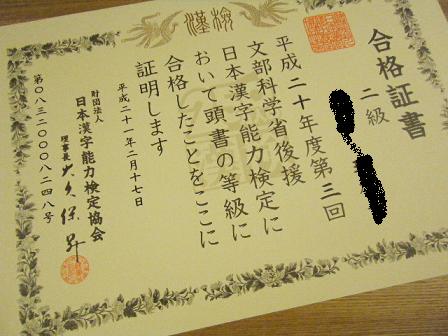 漢検
合格証書
二級
平成二十年度第三回
文部科学省後援
日本漢字能力検定に
おいて頭書の等級に
合格したことをここに
証明します
平成二十一年二月十七日
財団法人
日本漢字能力検定協会
理事長 大久保昇
第〇八三二〇〇〇八二四八号